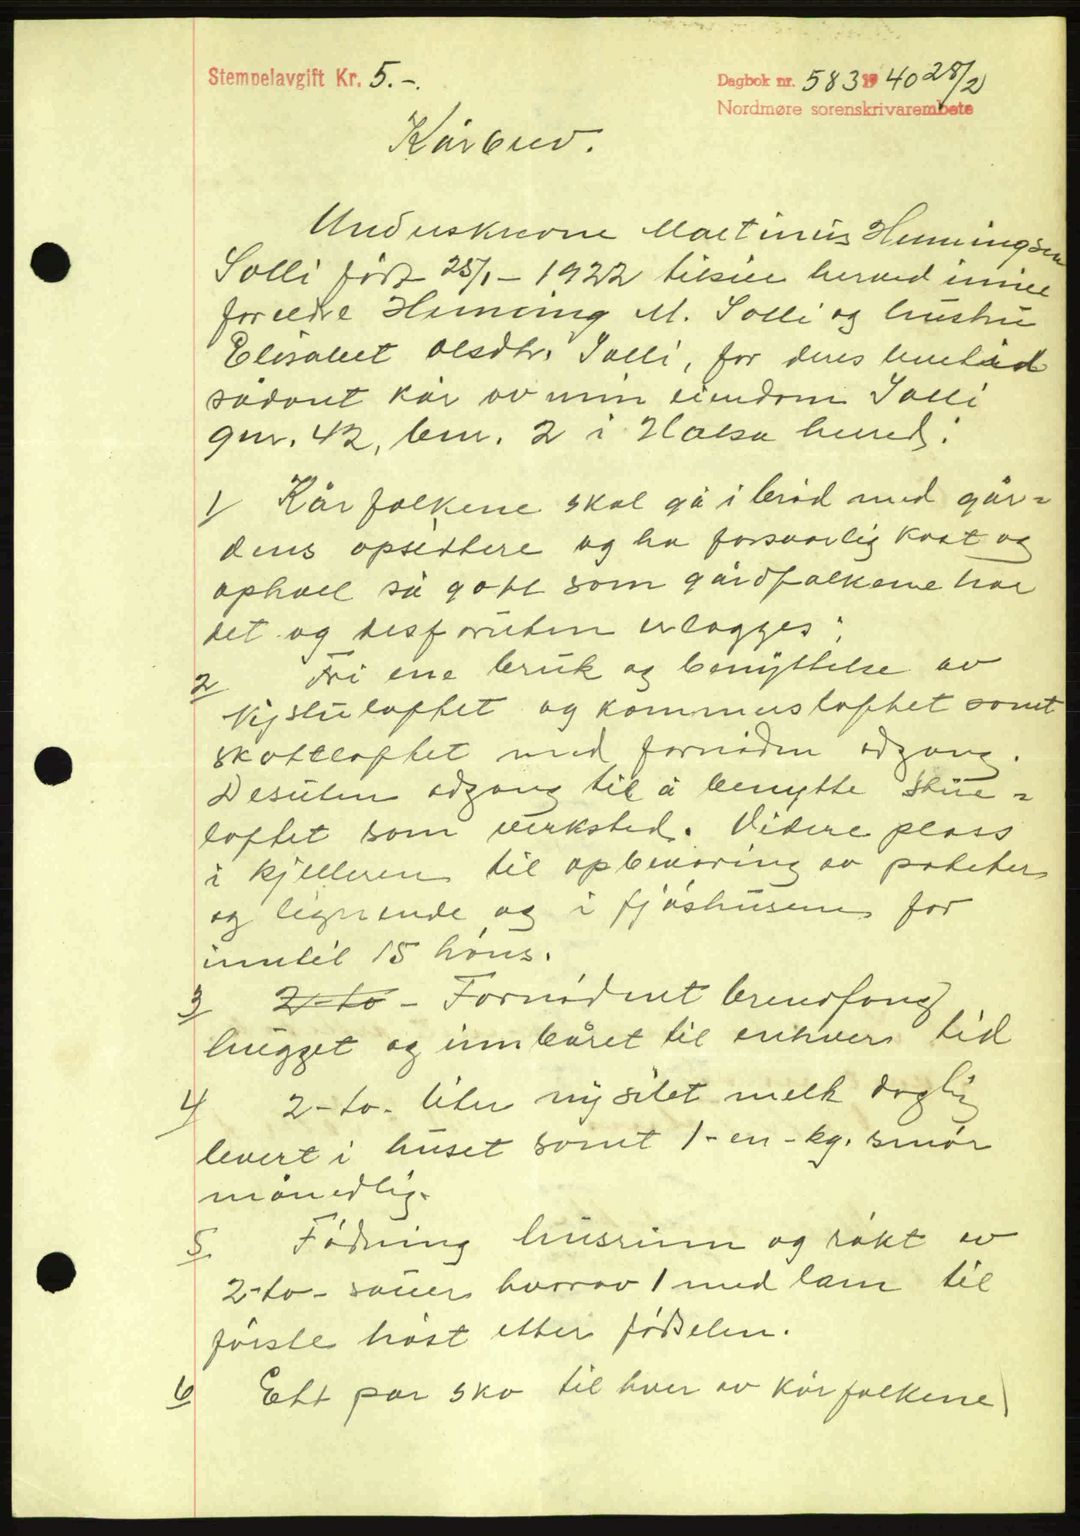 Stempelavgift Kr. 5.-.
Dagbok nr. 583 19 40 28/2
Nordmøre sorenskrivarembete
Kårbrev.
Underskrevne Martinus Henningsen
Solli født 25/1 - 1922 tilsier herved mine
foreldre Henning M. Solli og hustru
Elisabet Olsdtr. Solli, for deres levetid
sådant kår av min eiendom Solli
gnr. 42, bnr. 2 i Halsa herred:
1/ Kårfolkene skal gå i brød med går=
dens opsittere og ha forsvarlig kost og
ophold så godt som gårdfolkene har
det og desforuten erlegges:
2 Fri ene bruk og benyttelse av
Nystuloftet og kammersloftet samt
skottloftet med fornøden adgang.
Desuten adgang til å benytte stue=
loftet som verksted. Videre plass
i kjelleren til opbevaring av poteter
og lignende og i fjøshusene for
inntil 15 høns.
3/ 2-to - Fornødent brendfang
hugget og innbåret til enhver tid
4/ 2-to- liter nysilet melk daglig
levert i huset samt 1-en-kg. smør
månedlig.
5 Fødning husrum og røkt av
2-to- sauer hvorav 1 med lam til
første høst etter fødselen.
6 Ett par sko til hver av kårfolkene